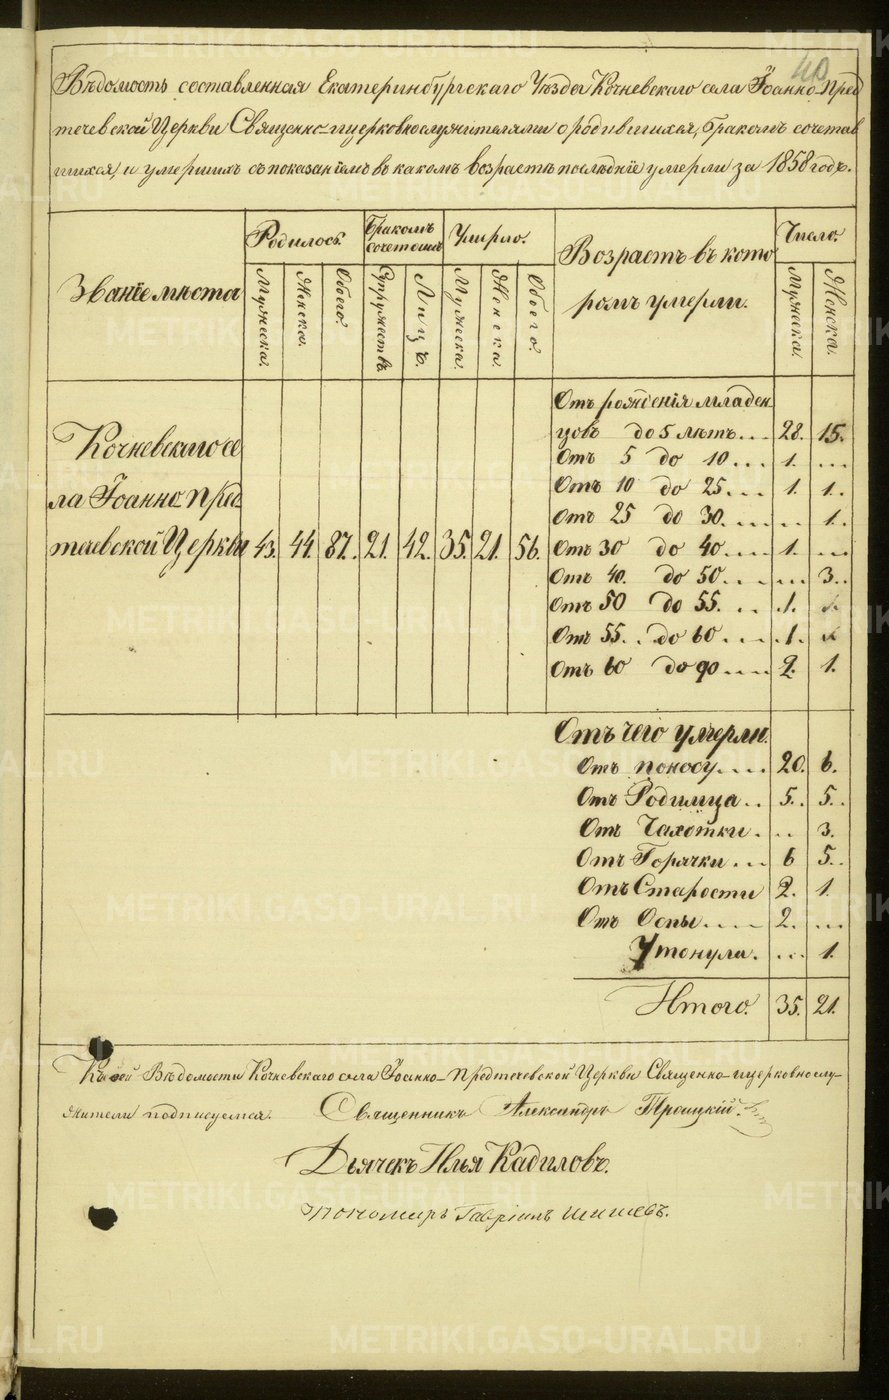 40
Вѣдомость составленная Екатеринбургскаго Уѣзда Кочневскаго села Іоанно-Пред
течевской Церкви Священно-церковнослужителями о родившихся, бракомъ сочетав
шихся, и умершихъ съ показаніемъ въ какомъ возрастѣ послѣдніе умерли за 1858 годъ.
Званіе мѣста
Родилось.
Бракомъ сочетаны
Умерло.
Возрастъ въ кото
ромъ умерли.
Число.
Мужеска. Женска. Обоего. Супружествъ Лицъ. Мужеска. Женска. Обоего. Мужеска. Женска.
Кочневскаго се
ла Іоанно-Пред-
течевской Церкви 43. 44. 87. 21. 42. 35. 21. 56.
Отъ рожденія младен
цовъ до 5 лѣтъ... 28. 15.
Отъ 5 до 10... 1. ...
Отъ 10 до 25... 1. 1.
Отъ 25 до 30. ... ... 1.
Отъ 30 до 40.... 1. ...
Отъ 40. до 50.. ... 3..
Отъ 50 до 55. .. .1.
Отъ 55.. до 60.... .1.
Отъ 60 до 90.... 2. 1.
Отъ чего умерли.
Отъ поносу.... 20. 6.
Отъ Родимца.. 5.. 5..
Отъ Чахотки. ... 3.
Отъ Горячки... 6 5..
Отъ Старости 2. 1.
Отъ Оспы.... 2. ...
Утонула. ... 1.
Итого. 35. 21.
Къ сей Вѣдомости Кочневскаго села Іоанно-Предтечевской Церкви Священно-церковнослу-
жители подписуемся. Священникъ Александръ Троицкій.
Дьячекъ Илья Кадиловъ.
Пономарь Гавріилъ Шишевъ.
METRIKI.GASO-URAL.RU